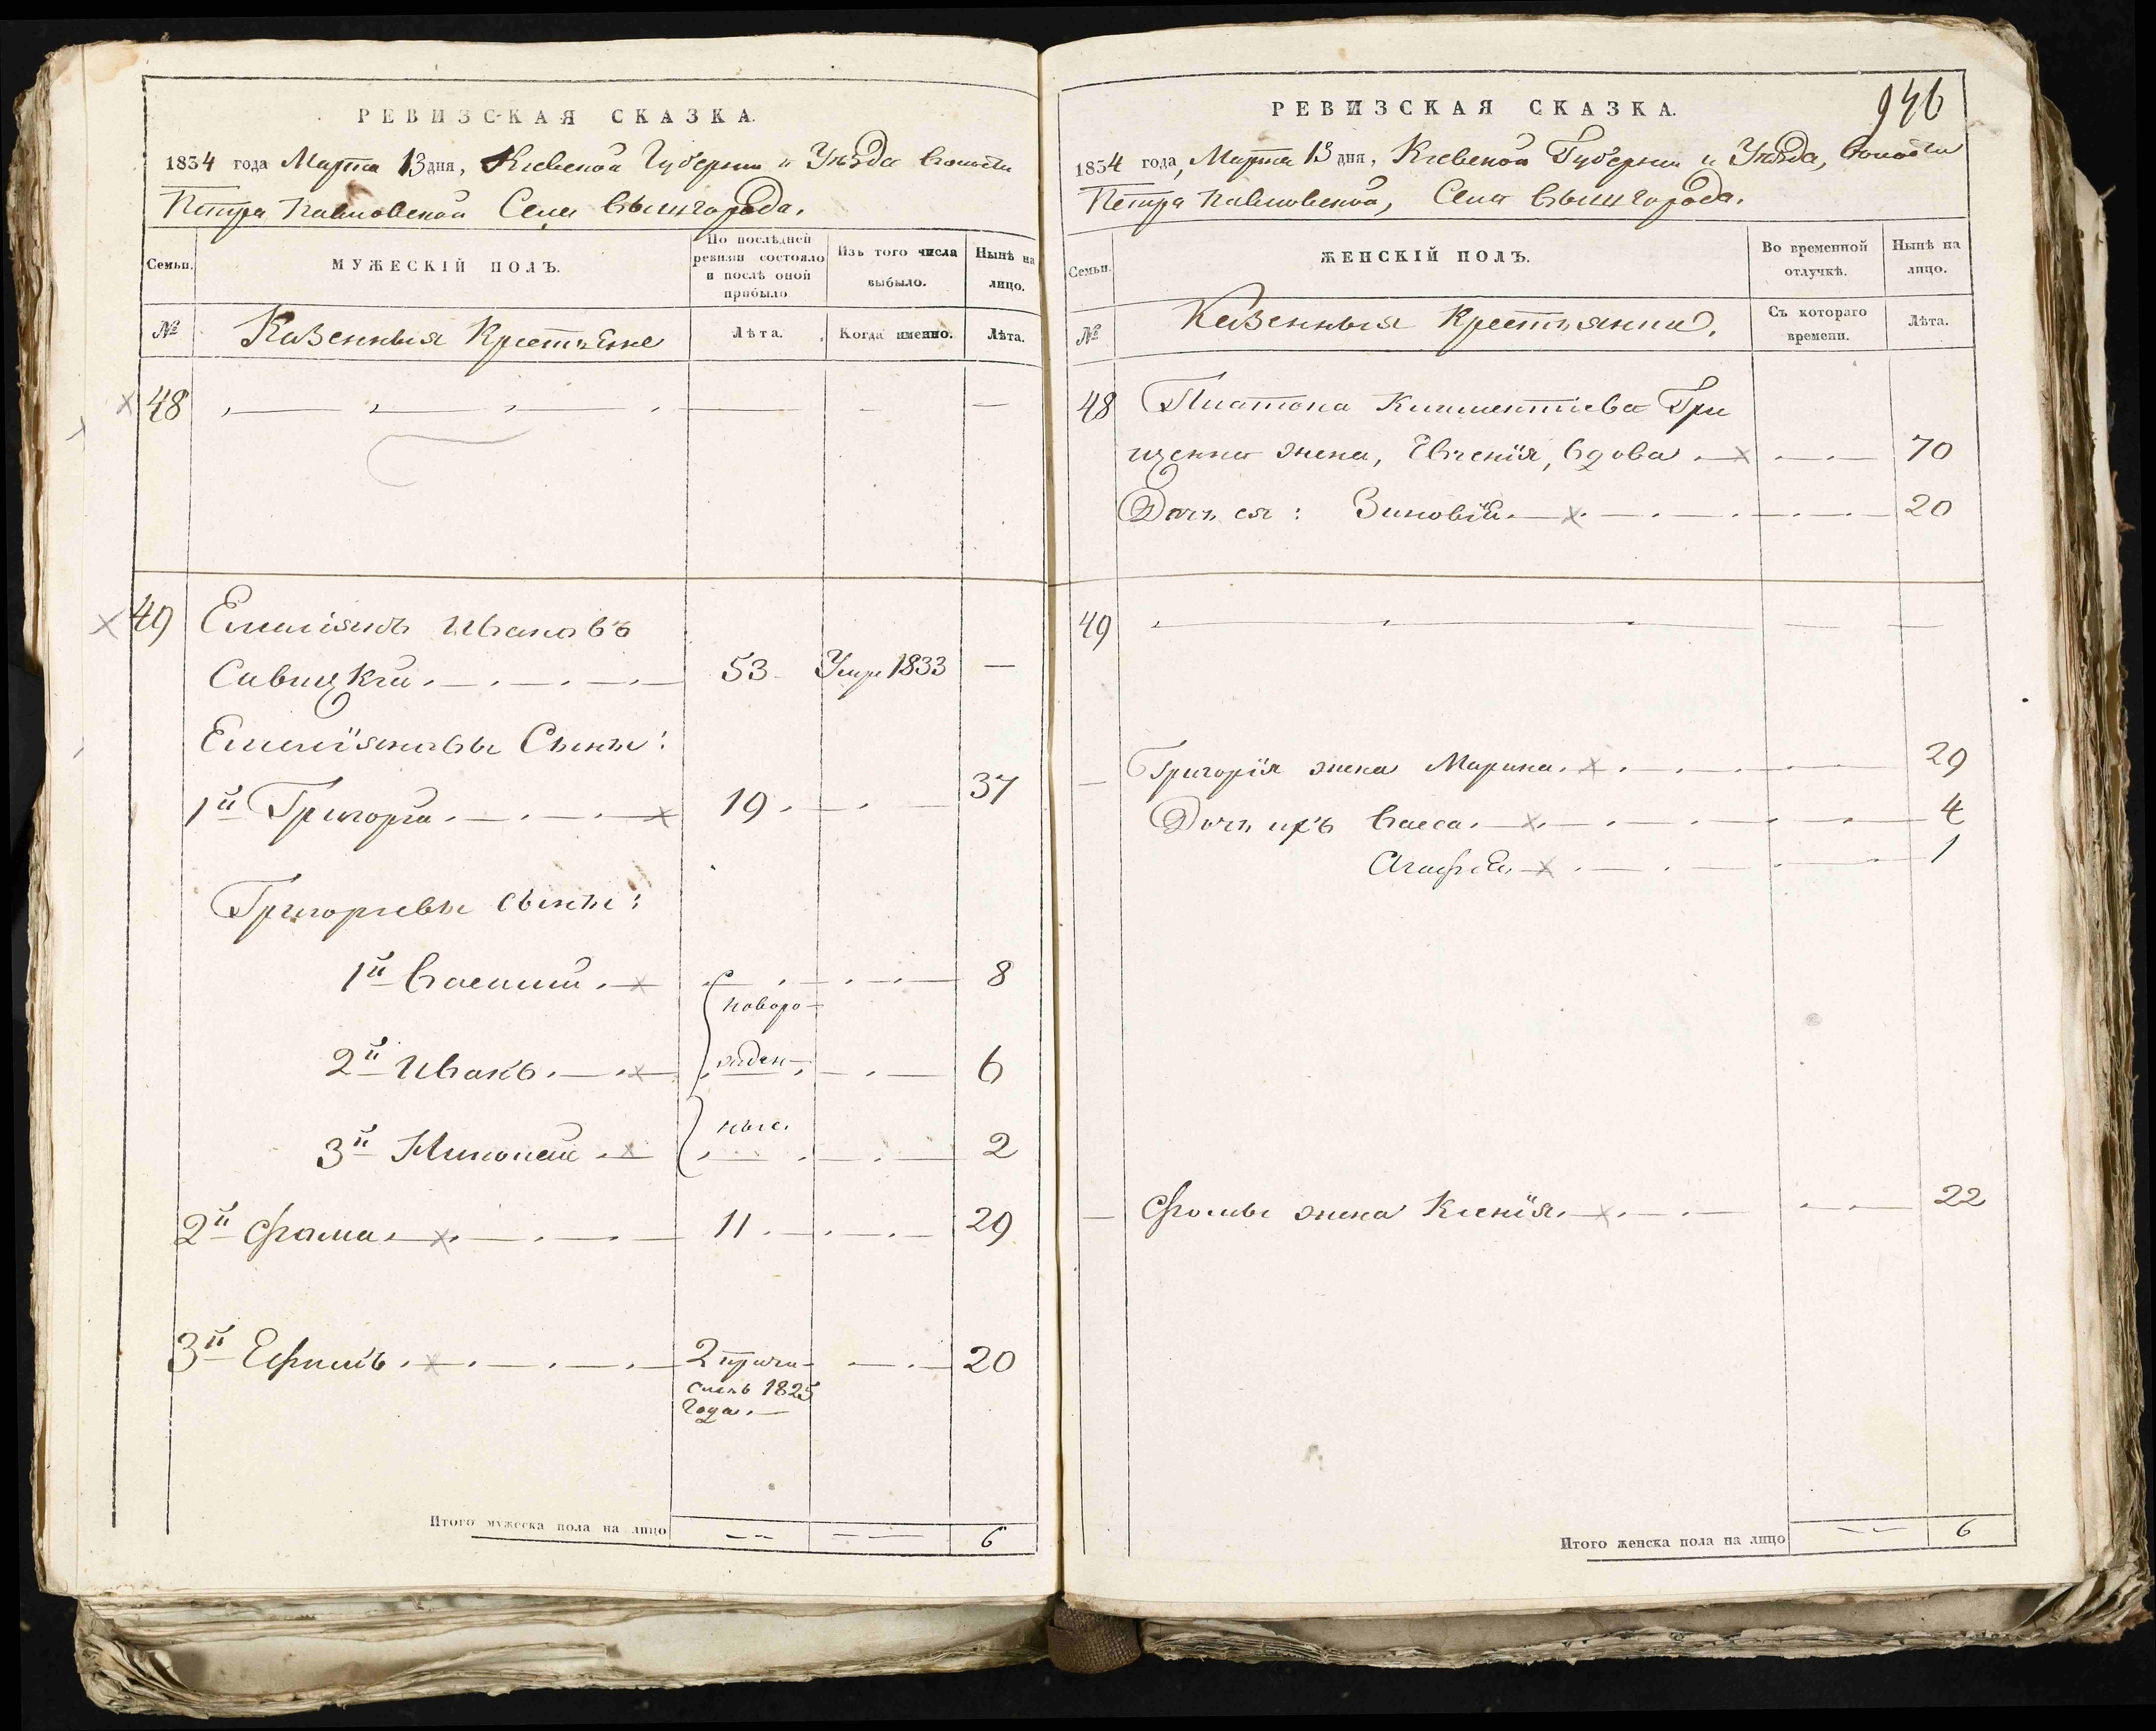 РЕВИЗСКАЯ СКАЗКА.
1834 года Марта 13 дня, Кіевской Губерніи и Уѣзда Волости
Петра Павловской Села Вышгорода.
Семьи.
МУЖЕСКІЙ ПОЛЪ.
По послѣдней ревизіи состояло и послѣ оной прибыло
Изъ того числа выбыло.
Нынѣ на лицо.
№
Казенныя Крестьяне
Лѣта.
Когда именно.
Лѣта.
48
49 Емиліянъ Ивановъ
Савицкій 53 Умре 1833 —
Емиліяновы Сыны:
1й Григорій 19 37
Григорьевы сыны:
1й Василий 8
новоро-
2й Иванъ жден- 6
ные.
3й Николай 2
2й Фома 11 29
3й Ефимъ 2 причи- 20
сленъ 1825
года.
Итого мужеска пола на лицо 6
946
РЕВИЗСКАЯ СКАЗКА.
1834 года, Марта 13 дня, Кіевской Губерніи и Уѣзда, Волости
Петра Павловской, Села Вышгорода.
Семьи.
ЖЕНСКІЙ ПОЛЪ.
Во временной отлучкѣ.
Нынѣ на лицо.
№
Казенныя Крестьянки.
Съ котораго времени.
Лѣта.
48 Платона Климентіева Гри
щенка жена, Евгенія, вдова 70
Дочь ея: Зиновія 20
49
Григорія жена Марина 29
Дочь ихъ Васса 4
Агафія 1
Фомы жена Ксенія 22
Итого женска пола на лицо 6